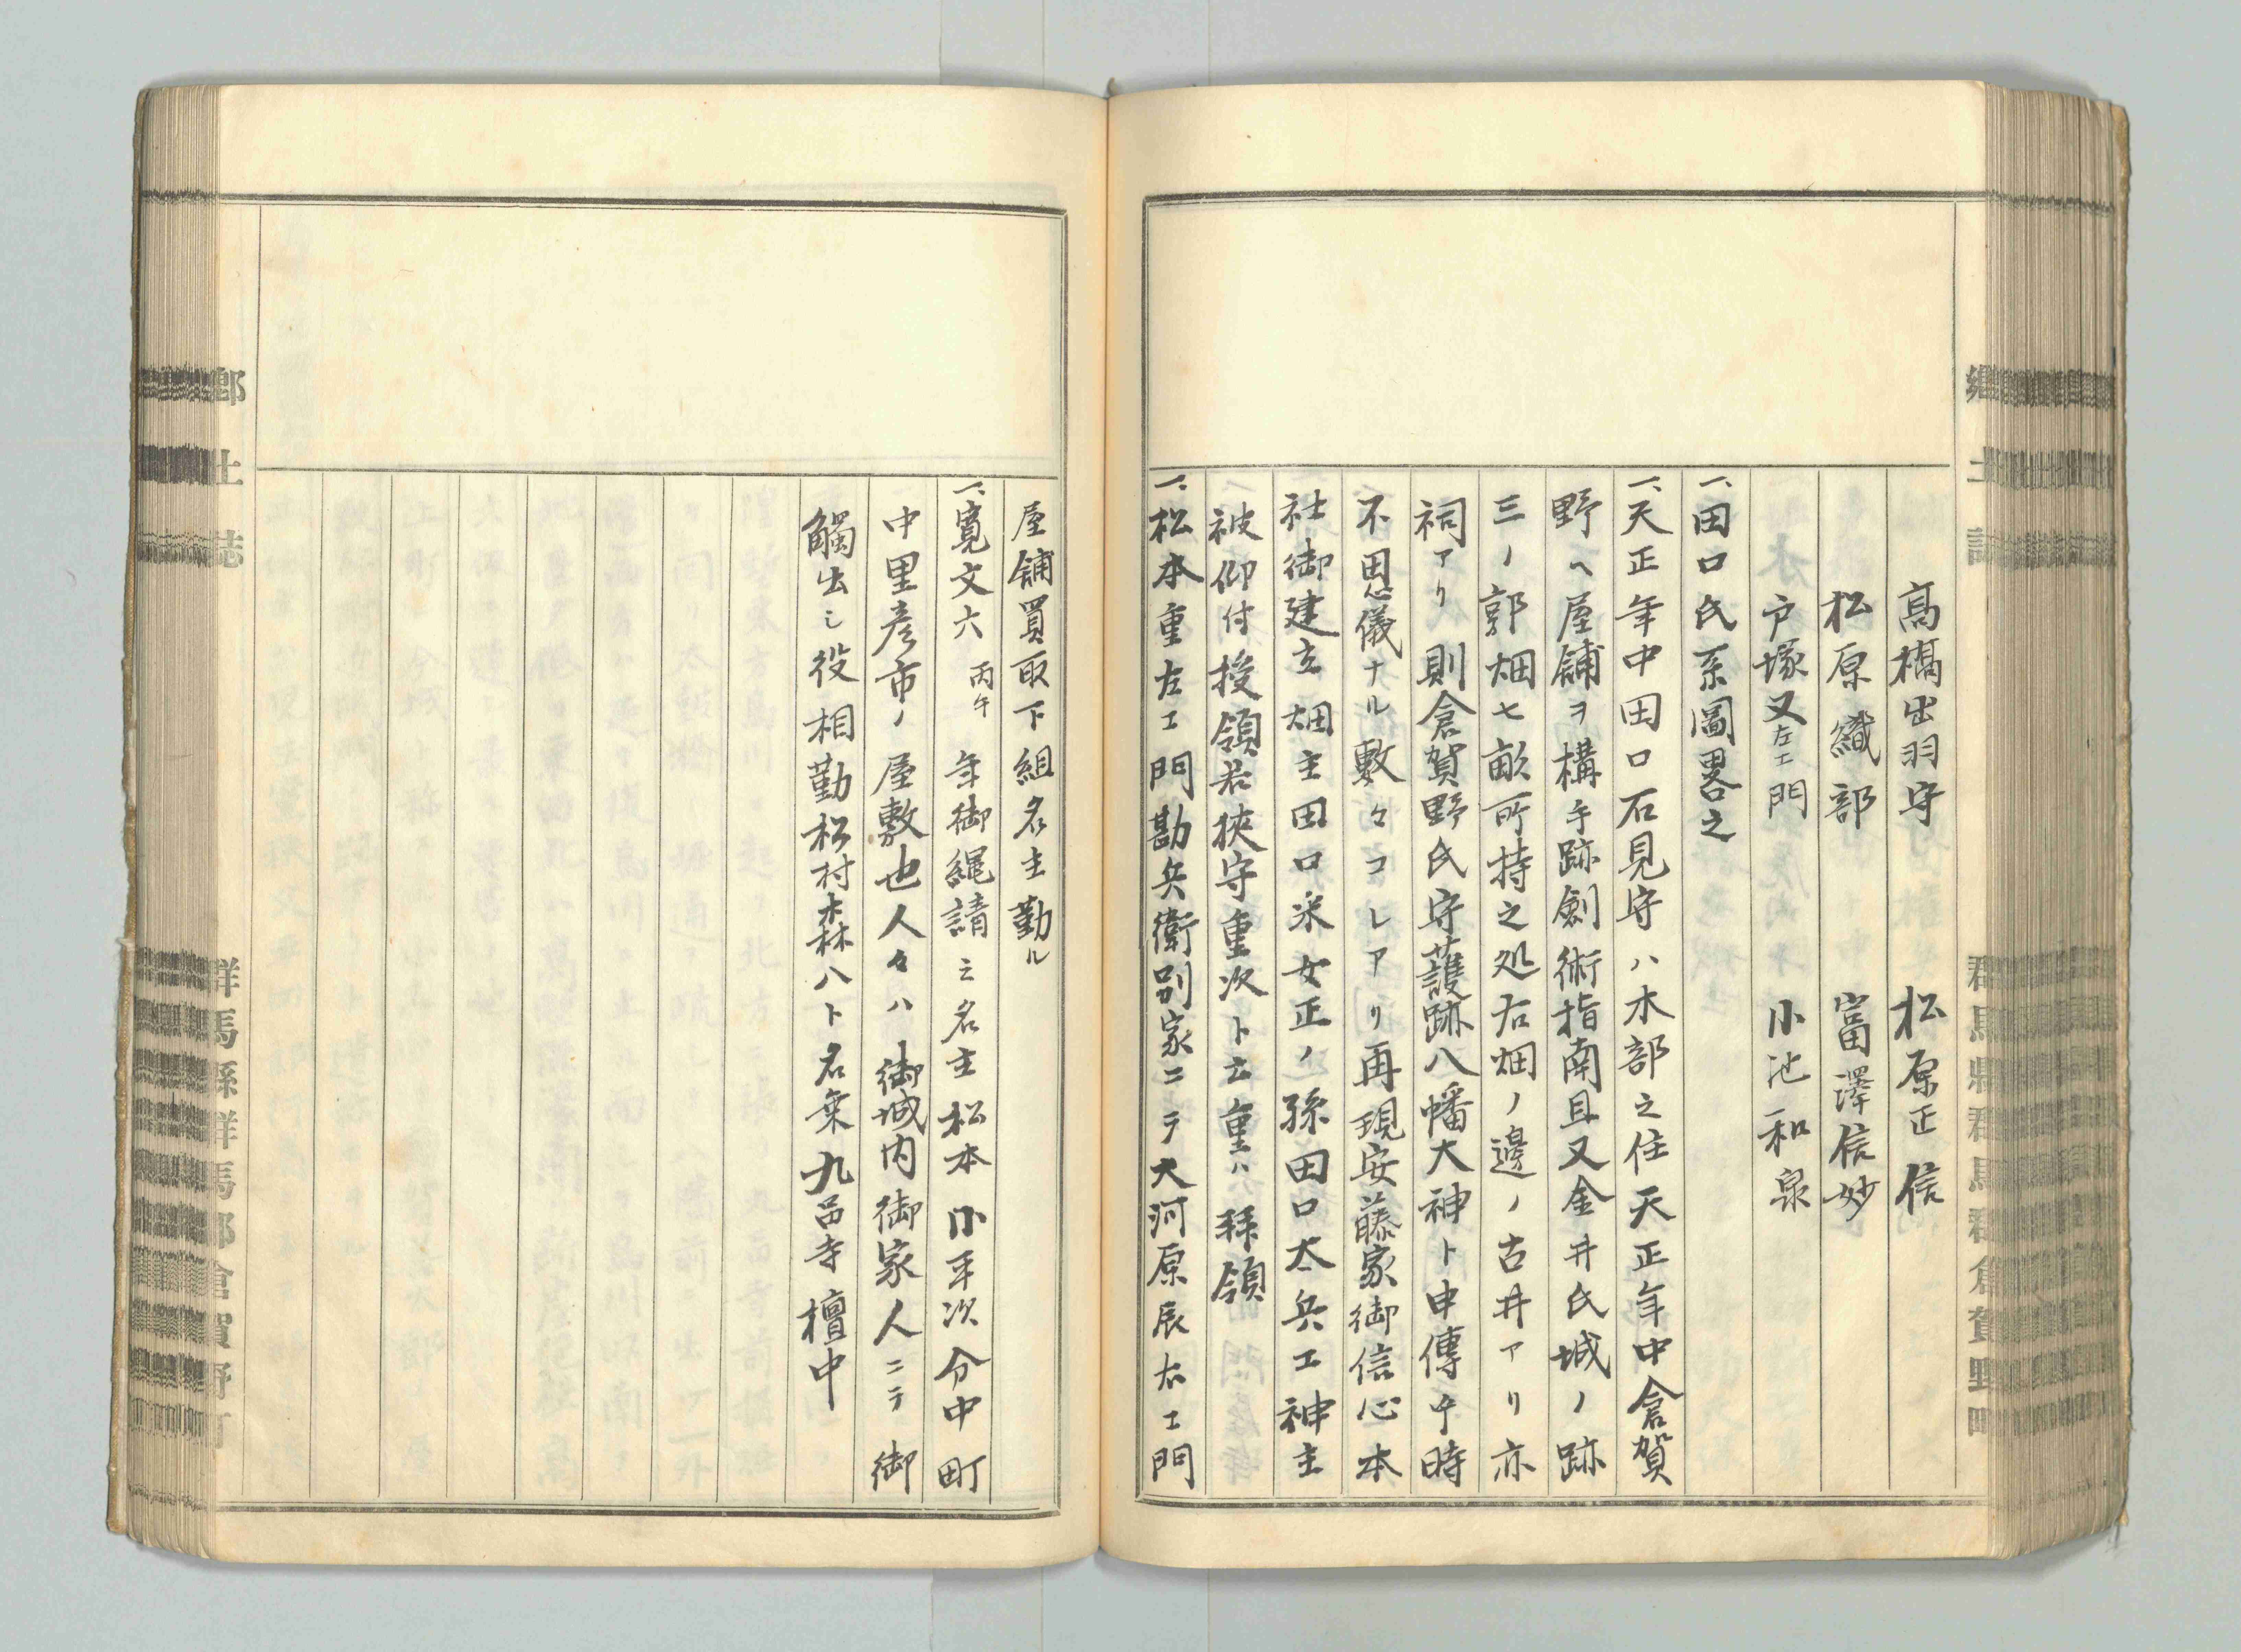 高橋出羽守　松原正信
松原織部　富澤信妙
戸塚又左エ門　小池和泉
一、田口氏系圖畧之
一、天正年中田口石見守ハ木部之住天正年中倉賀
野ヘ屋舗ヲ構手跡劍術指南且又金井氏城ノ跡
三ノ郭畑七畝所持之処右畑ノ邊ノ古井アリ亦
祠アリ則倉賀野氏守護跡八幡大神ト申傳于時
不思儀ナル敷々コレアリ再現安藤家御信心本
社御建立畑主田口采女正ノ孫田口太兵エ神主
被仰付授領若狹守重次ト云重ハ拜領
一、松本重左エ門勘兵衛別家ニテ大河原辰右エ門
屋舗買取下組名主勤ル
一、寛文六丙午年御縄請ニ名主松本小平次分中町
中里彦市ノ屋敷也人々ハ御城内御家人ニテ御
觸出シ役相勤松村森八ト名乗九品寺檀中
鄕土誌
群馬縣群馬郡倉賀野町